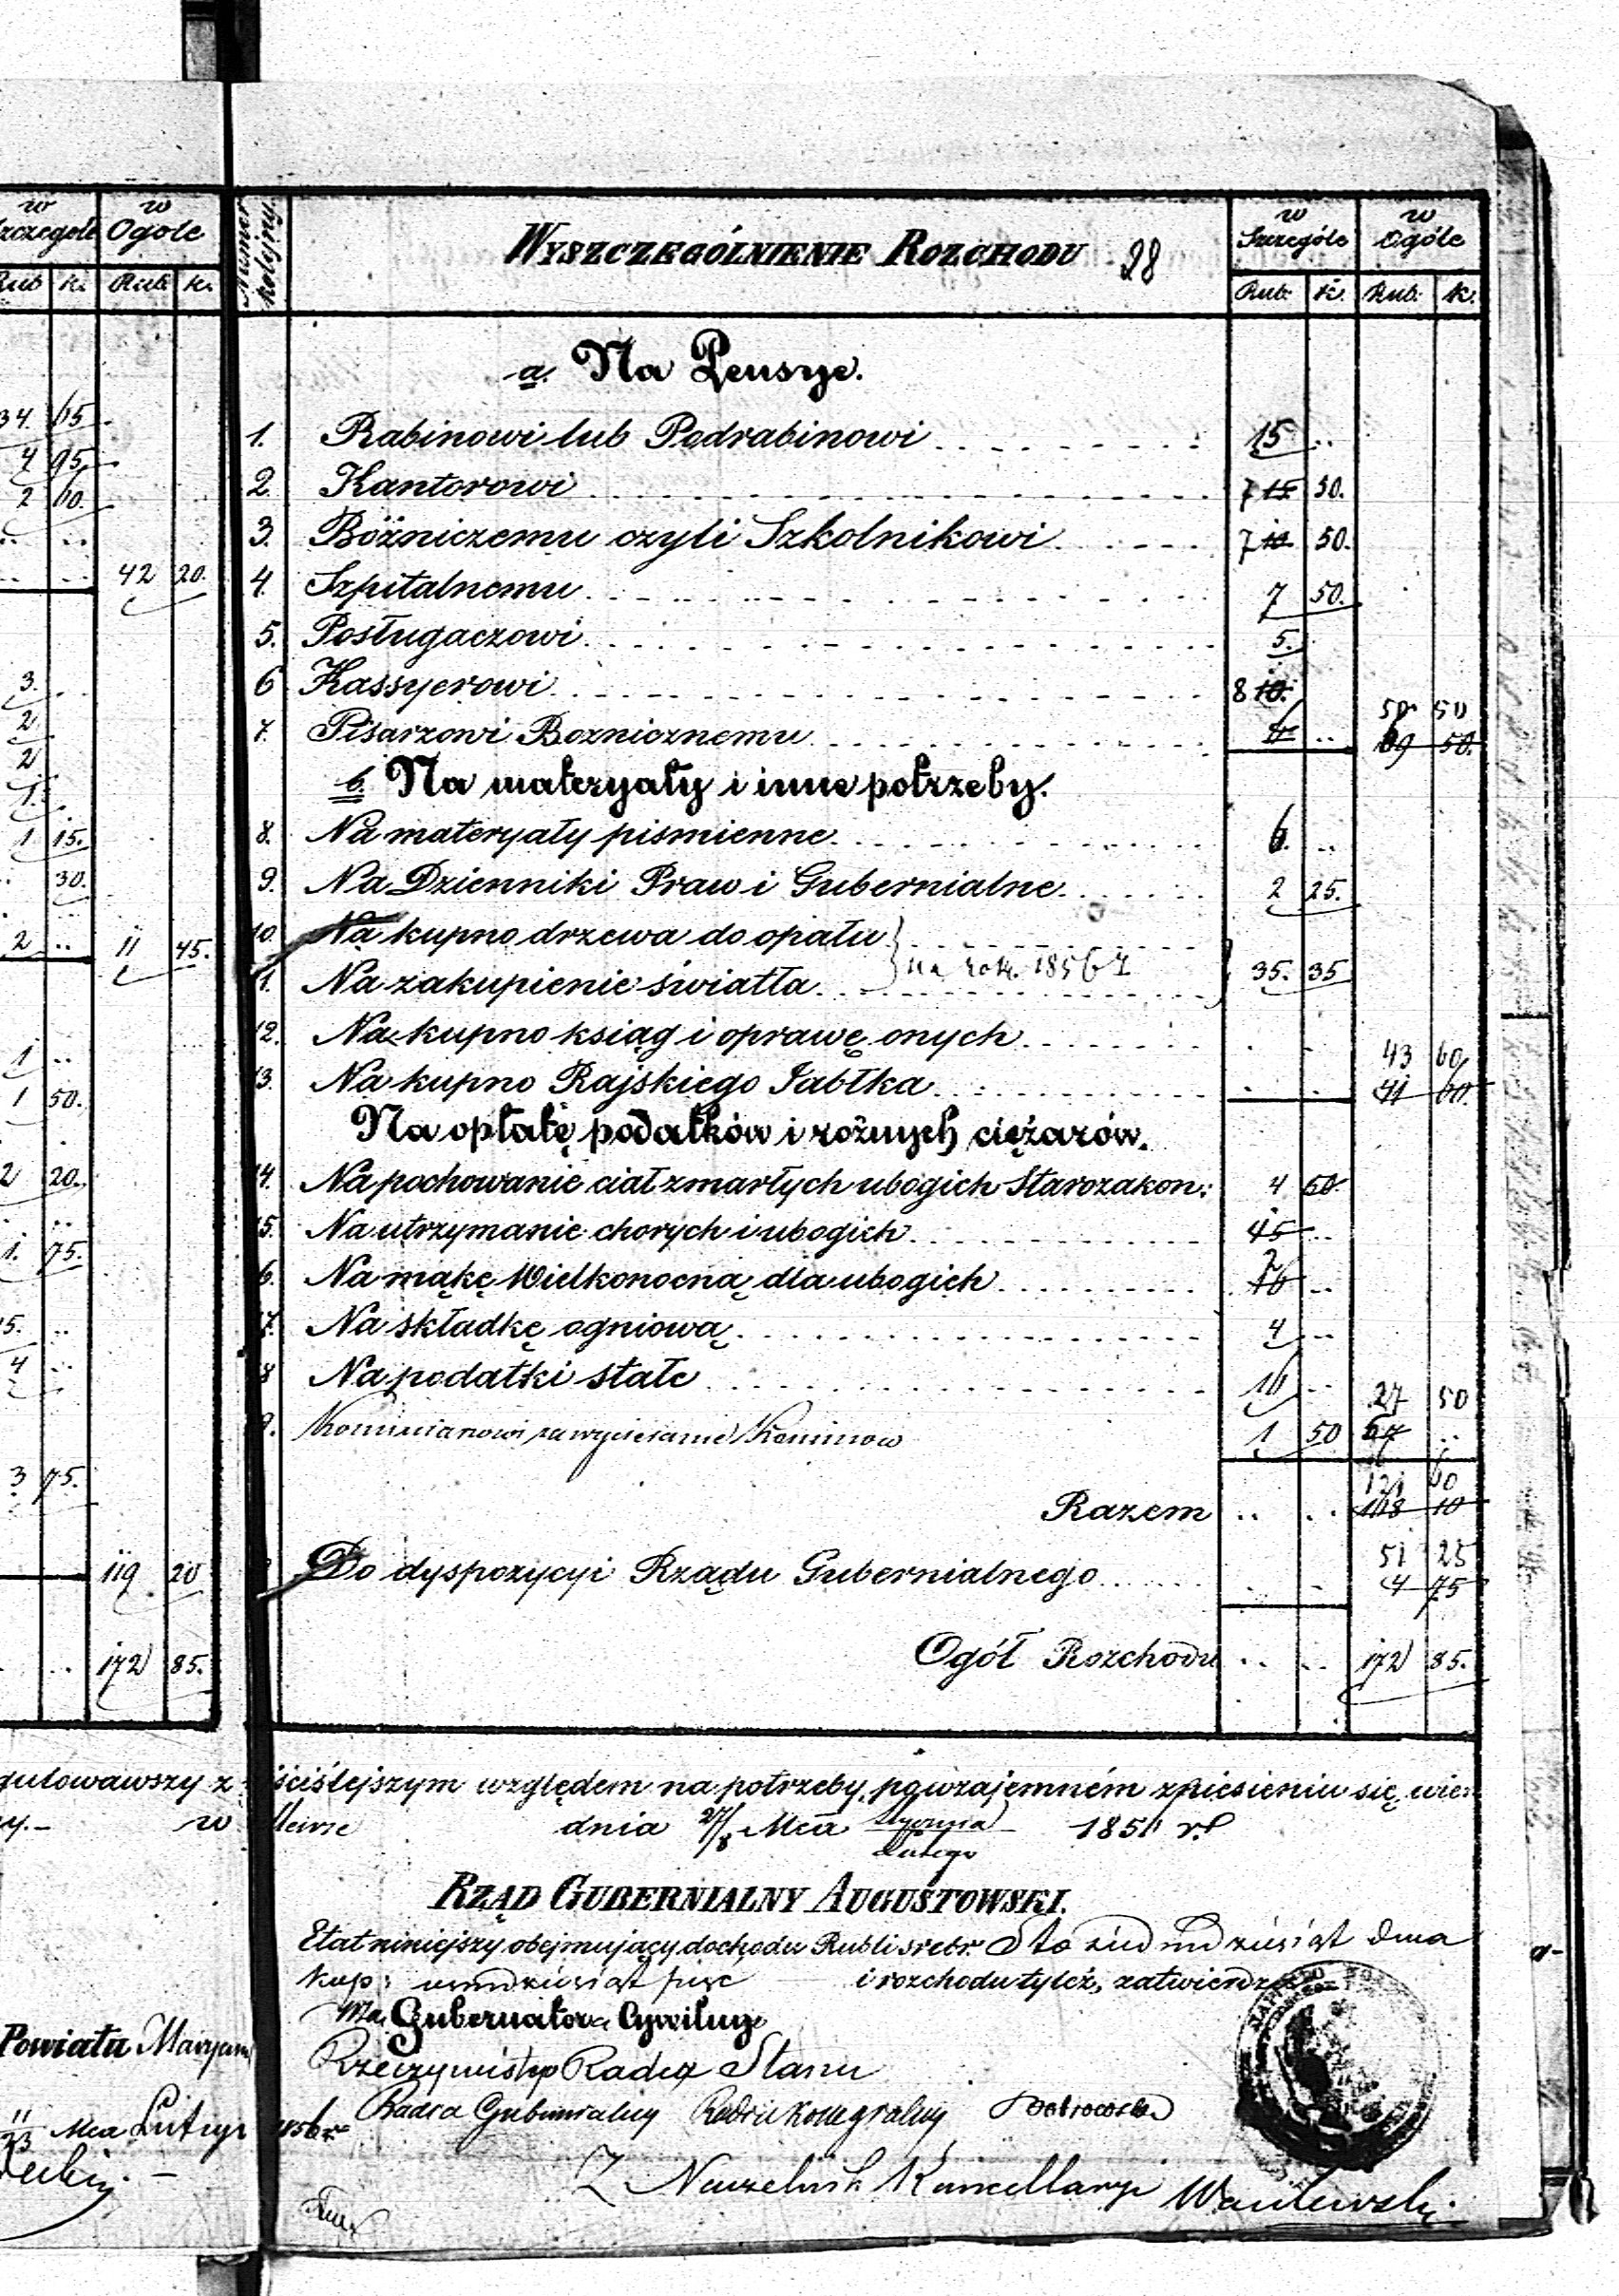 w Szczegole w Ogole
Rub k. Rub. k.
34. 15
4 95
2 10.
42 20.
3.
2
2
1.
1 15.
30.
2 .. 11 45.
1 ..
1 50.
2 20.
1. 75.
5. ..
4 ..
3 75.
119 20
172 85.
Numer kolejny. WYSZCZEGÓLNIENIE ROZCHODU 28 w Szczególe w Ogóle
Rub. k. Rub. k.
a. Na Pensye.
1. Rabinowi lub Podrabinowi 15 ..
2. Kantorowi 7 15 50.
3. Bóźniczemu czyli Szkolnikowi 7 10 50.
4. Szpitalnemu 7 50.
5. Posługaczowi 5.
6 Kassyerowi 8 10.
50 50
7. Pisarzowi Boznicznemu .. 69 50.
b. Na materyały i inne potrzeby.
8. Na materyały piśmienne 6. ..
9. Na Dzienniki Praw i Gubernialne 2 25.
10. Na kupno drzewa do opału
11. Na zakupienie światła na rok 1856/7 35. 35
12. Na kupno ksiąg i oprawę onych
43 60
13. Na kupno Rajskiego Jabłka 41 60.
Na opłatę podatków i rożnych ciężarów.
14. Na pochowanie ciał zmarłych ubogich Starozakon: 4 50.
15. Na utrzymanie chorych i ubogich 45 ..
16. Na mąkę Wielkonocną dla ubogich 2 16 ..
17. Na składkę ogniową 4 ..
18 Na podatki stałe 16 ..
27 50
19. Kominiarowi za wycieranie Kominow 1 50 57 ..
121 60
Razem .. .. 168 10
51 25
Do dyspozycyi Rządu Gubernialnego 4 75
Ogół Rozchodu .. .. 172 85.
gulowawszy z ściślejszym względem na potrzeby, po wzajemném zniesieniu się, wier
w dnia 27/8 Mca Stycznia/Lutego 1856 r.
RZĄD GUBERNIALNY AUGUSTOWSKI.
Etat niniejszy obejmujący dochodu Rubli srebr. Sto siedmdziesiąt dwa
kop: ośmdziesiąt pięć i rozchodu tyleż, zatwierdza
Gubernatora Cywilny
Powiatu Maryam
Rzeczywisty Radca Stanu
Radca Gubernialny Radca Kollegialny
11/23 Mca Lutego 1856 r.
Z Naczelnik Kancellaryi